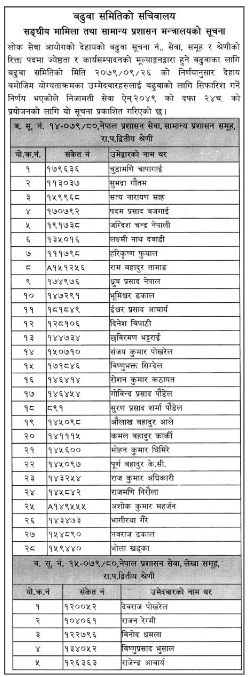 बढुवा समितिको सचिवालय
सङ्घीय मामिला तथा सामान्य प्रशासन मन्त्रालयको सूचना
लोक सेवा आयोगको देहायको बढुवा सूचना नं., सेवा, समूह र श्रेणीको
रिक्त पदमा ज्येष्ठता र कार्यसम्पादनको मूल्याङ्कनद्वारा हुने बढुवाका लागि
बढुवा समितिको मिति २०७९/०९/२६ को निर्णयानुसार देहाय
बमोजिम योग्यताक्रमका उम्मेदवारहरूलाई बढुवाको लागि सिफारिश गर्ने
निर्णय भएकोले निजामती सेवा ऐन,२०४९, को दफा २४च. को
प्रयोजनको लागि यो सूचना प्रकाशित गरिएको छ।
ब. सू. नं. १४-०७९/८०,नेपाल प्रशासन सेवा,सामान्य प्रशासन समूह,
रा.प.द्वितीय श्रेणी
यो.क्र.नं. संकेत नं उम्मेदवारको नाम थर
१ १७९६३६ चुडामणि चापागाईं
२ ११३०३७ सुभद्रा गौतम
३ १५९९६८ सत्य नारायण साह
४ १७०७९२ पदम प्रसाद बजगाईं
५ १९५७५१ जगदिश चन्द्र नेपाली
६ १३५०१६ लक्ष्मी नाथ दवाडी
७ १११७९८ हरिकृष्ण फुयाल
८ A१५१२५६ राम बहादुर तामाङ
९ १७४९७६ ध्रुब प्रसाद नेपाल
१० १४७२९१ भूमिश्वर ढकाल
११ १८१८४९ ईश्वर प्रसाद आचार्य
१२ १२८१०६ दिनेश त्रिपाठी
१३ १४४७३४ छविरमण भट्टराई
१४ १५०७१० संजय कुमार पोखरेल
१५ १७१८४६ विष्णुभक्त सिग्देल
१६ १४६४१४ रोशन कुमार कठायत
१७ १४६४५४ गोविन्द प्रसाद पौडेल
१८ ८९१ सुरण प्रसाद शर्मा पौडेल
१९ १४५०९८ औलाख बहादुर आले
२० १४१११५ कमल बहादुर कार्की
२१ १४५६०० मोहन कुमार घिमिरे
२२ १४५०९७ पूर्ण बहादुर के.सी.
२३ १४३२५४ राज कुमार अधिकारी
२४ १४५८४२ राजमणि निरौला
२५ A१४९५५५ अशोक कुमार महर्जन
२६ १४३४७३ भागीरथा गैरे
२७ १५४८९० नवराज ढकाल
२८ १५९४४० भोला खड्का
ब. सू. नं. १५-०७९/८०,नेपाल प्रशासन सेवा, लेखा समूह,
रा.प.द्वितीय श्रेणी
यो.क्र.नं संकेत नं उम्मेदवारको नाम थर
१ १२००५२ देवराज पोखरेल
२ १०४०६१ राजन रेग्मी
३ १२२७९६ विनोद धमला
४ १३४०५२ विष्णुप्रसाद भुसाल
५ १२६३६३ राजेन्द्र आचार्य